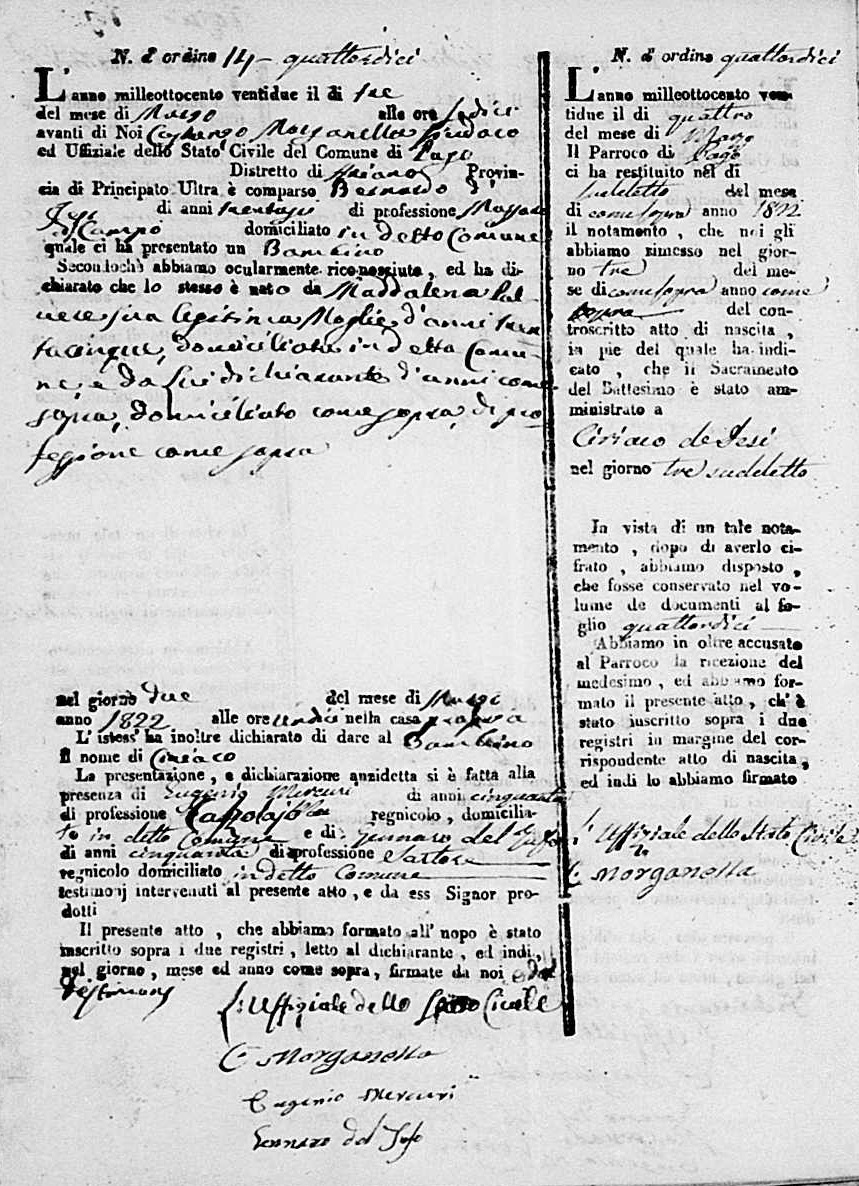 N. d'ordine 14 - quattordici
L'anno milleottocento ventidue il di tre
del mese di Marzo alle ore sedici
avanti di Noi Morganella Sindaco
ed Uffiziale dello Stato Civile del Comune di Pago
Distretto di Ariano Provin-
cia di Principato Ultra è comparso Bernardo d'
Jesi di anni trentasei di professione Massaro
di Campo domiciliato in detto Comune
quale ci ha presentato un Bambino
Secondochè abbiamo ocularmente riconosciuto, ed ha di-
chiarato che lo stesso è nato da Maddalena Sal-
vere sua legitima Moglie d'anni tren
tacinque, domiciliata in detto Comu-
ne, e da Lui dichiarante d'anni come
sopra, domiciliato come sopra, di pro
fezzione come sopra
nel giorno due del mese di Marzo
anno 1822 alle ore undici nella casa propria
L'istess' ha inoltre dichiarato di dare al Bambino
Il nome di Ciriaco
La presentazione, e dichiarazione anzidetta si è fatta alla
presenza di Eugenio Mercuri di anni cinquanta
di professione regnicolo, domicilia-
to in detto Comune e di Gennaro del Jufo
di anni cinquanta di professione Sartore
regnicolo domiciliato in detto Comune
testimonj intervenuti al presente atto, e da ess Signor pro-
dotti
Il presente atto, che abbiamo formato all' uopo è stato
inscritto sopra i due registri, letto al dichiarante, ed indi,
nel giorno, mese ed anno come sopra, firmate da noi e dai
Testimonj
L'Uffiziale dello Stato Civile
C. Morganella
Eugenio Mercuri
Gennaro del Jufo
N. d' ordine quattordici
L'anno milleottocento ven-
tidue il di quattro
del mese di Marzo
Il Parroco di Pago
ci ha restituito nel di
suddetto del mese
di come sopra anno 1822
il notamento, che noi gli
abbiamo rimesso nel gior-
no tre del me-
se di come sopra anno come
sopra del con-
troscritto atto di nascita,
in pie del quale ha indi-
cato, che il Sacramento
del Battesimo è stato am-
ministrato a
Ciriaco de Jesi
nel giorno tre suddetto
In vista di un tale nota-
mento, dopo di averlo ci-
frato, abbiamo disposto,
che fosse conservato nel vo-
lume de documenti al fo-
glio quattordici
Abbiamo in oltre accusato
al Parroco la ricezione del
medesimo, ed abbiamo for-
mato il presente atto, ch' è
stato inscritto sopra i due
registri in margine del cor-
rispondente atto di nascita,
ed indi lo abbiamo firmato
L'Uffiziale dello Stato Civile
C. Morganella